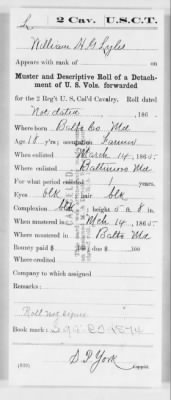 L | 2 Cav. | U.S.C.T.
William H G Lyles
Appears with rank of
Muster and Descriptive Roll of a Detach-
ment of U. S. Vols. forwarded
for the 2 Reg't U. S. Col'd Cavalry. Roll dated
Not dated, 186 .
Where born Balto Co Md
Age 18 y'rs; occupation Farmer
When enlisted March 14, 1865.
Where enlisted Baltimore Md
For what period enlisted 1 years.
Eyes blk; hair blk
Complexion blk; height 5 ft. 8 in.
When mustered in Mch 14, 1865.
Where mustered in Balto Md
Bounty paid $ 100; due $ 100
Where credited
Company to which assigned
Remarks:
Roll not
Book mark:
S. P. York
(339) Copyist.
CANCELLED.